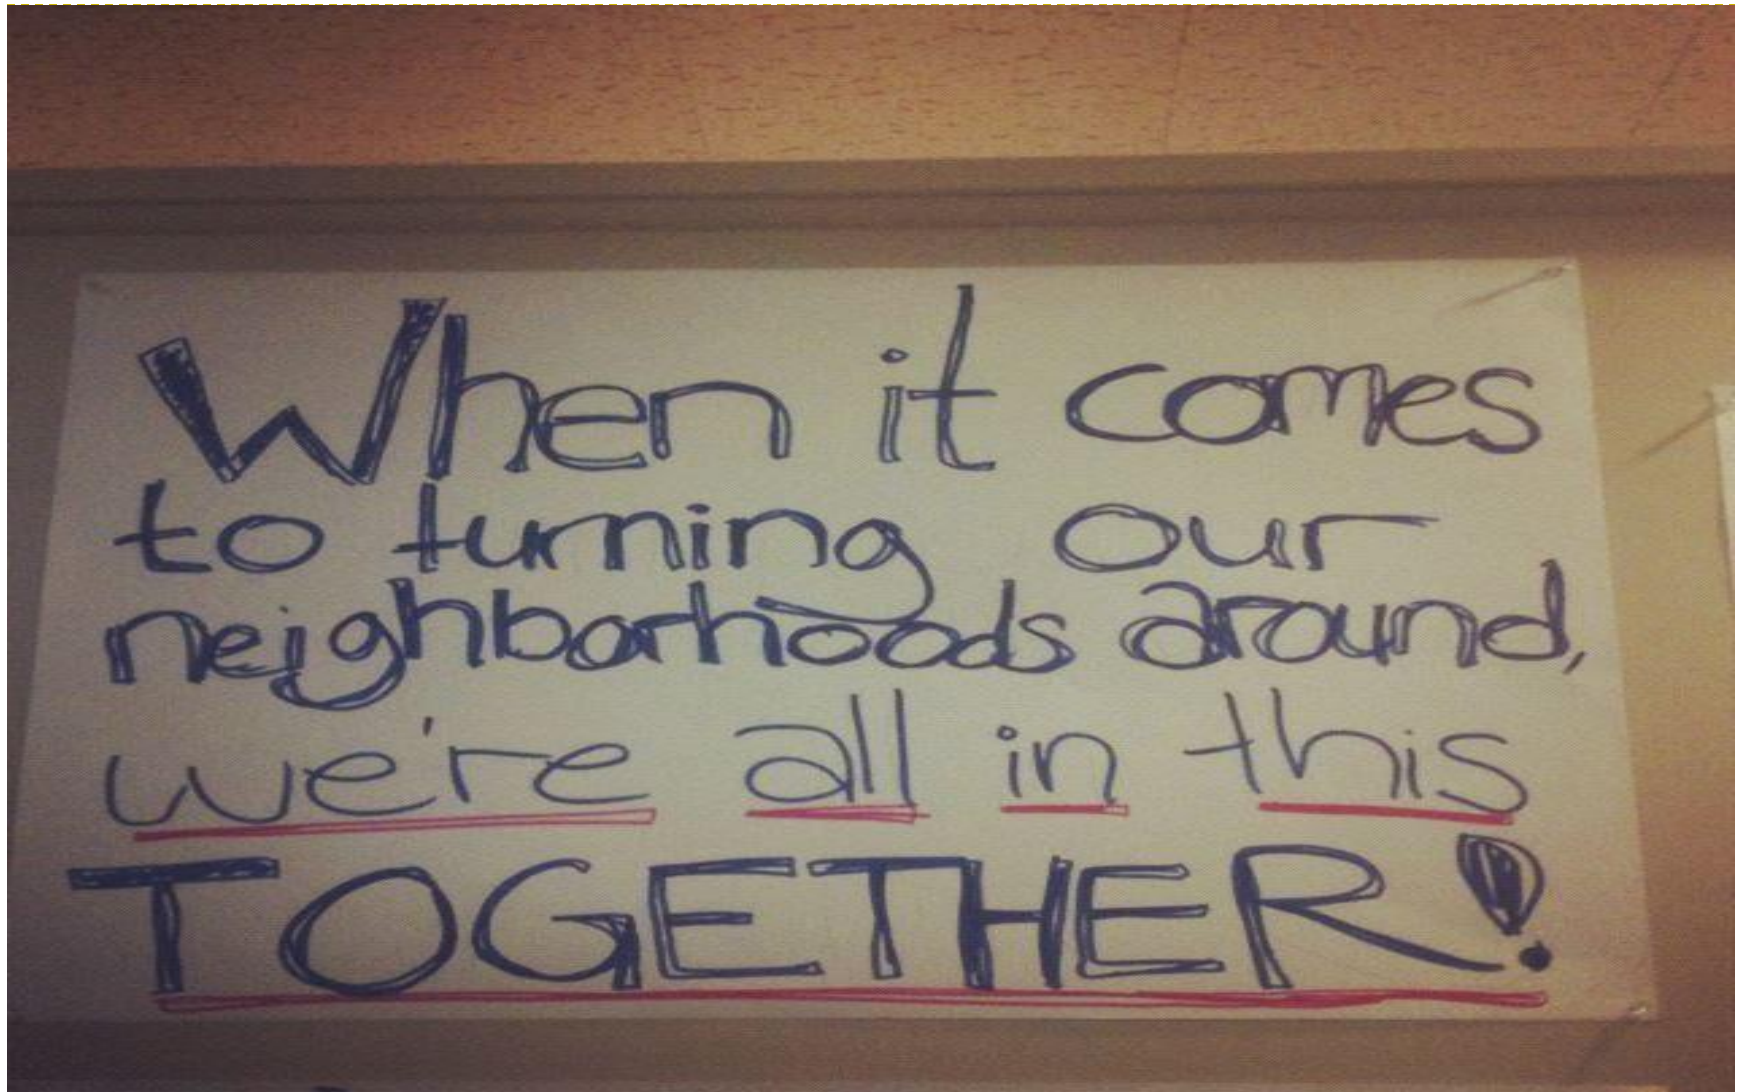 When it comes
to turning our
neighborhoods around,
we're all in this
TOGETHER!